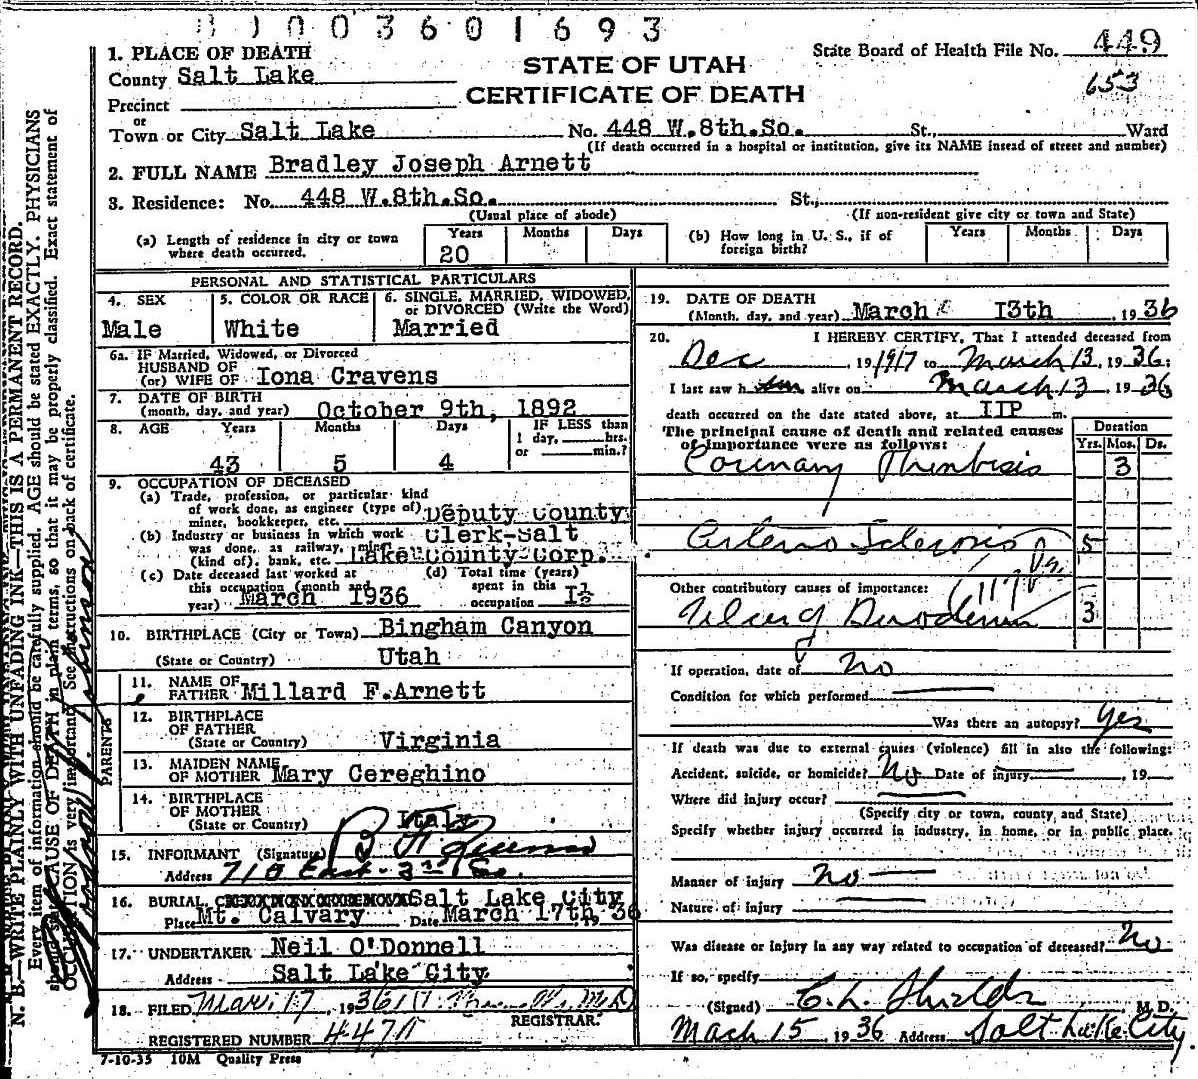 1003601693
1. PLACE OF DEATH
County Salt Lake
Precinct
or
Town or City Salt Lake No. 448 W.8th.So. St., Ward
(If death occurred in a hospital or institution, give its NAME insead of street and number)
STATE OF UTAH
CERTIFICATE OF DEATH
State Board of Health File No. 449
653
2. FULL NAME Bradley Joseph Arnett
3. Residence: No. 448 W.8th.So. St.,
(Usual place of abode) (If non-resident give city or town and State)
(a) Length of residence in city or town where death occurred. Years 20 Months Days
(b) How long in U. S., if of foreign birth? Years Months Days
PERSONAL AND STATISTICAL PARTICULARS
4. SEX Male
5. COLOR OR RACE White
6. SINGLE, MARRIED, WIDOWED, or DIVORCED (Write the Word) Married
6a. IF Married, Widowed, or Divorced
HUSBAND OF
(or) WIFE OF Iona Cravens
7. DATE OF BIRTH
(month, day, and year) October 9th, 1892
8. AGE Years 43 Months 5 Days 4 IF LESS than 1 day, hrs. or min.?
9. OCCUPATION OF DECEASED
(a) Trade, profession, or particular kind
of work done, as engineer (type of)
miner, bookkeeper, etc. Deputy County
(b) Industry or business in which work Clerk-Salt
was done, as railway,
(kind of), bank, etc. Lake County Corp.
(c) Date deceased last worked at
this occupation (month and
year) March 1936
(d) Total time (years)
spent in this
occupation 1½
10. BIRTHPLACE (City or Town) Bingham Canyon
(State or Country) Utah
PARENTS
11. NAME OF
FATHER Millard F.Arnett
12. BIRTHPLACE
OF FATHER
(State or Country) Virginia
13. MAIDEN NAME
OF MOTHER Mary Cereghino
14. BIRTHPLACE
OF MOTHER
(State or Country) Italy
15. INFORMANT (Signature)
Address 710 East - 3rd So.
16. BURIAL, Salt Lake City
Place Mt. Calvary Date March 17th, 1936
17. UNDERTAKER Neil O'Donnell
Address Salt Lake City
18. FILED Mar. 17, 1936
REGISTRAR.
REGISTERED NUMBER
7-10-35 10M Quality Press
19. DATE OF DEATH
(Month, day, and year) March 13th, 1936
20. I HEREBY CERTIFY, That I attended deceased from
Dec, 19 1917 to March 13, 1936;
I last saw h im alive on March 13, 1936
death occurred on the date stated above, at 11P m.
The principal cause of death and related causes
of importance were as follows:
Duration
Yrs. Mos. Ds.
Coronary Thrombosis 3
Arterio Sclerosis 5
Other contributory causes of importance:
Ulcer of Duodenum 3
If operation, date of no
Condition for which performed
Was there an autopsy? Yes
If death was due to external causes (violence) fill in also the following:
Accident, suicide, or homicide? No Date of injury, 19
Where did injury occur?
(Specify city or town, county and State)
Specify whether injury occurred in industry, in home, or in public place.
Manner of injury no
Nature of injury
Was disease or injury in any way related to occupation of deceased? No
If so, specify
(Signed) C. L. Shields M. D.
Mach 15, 1936 Address Salt Lake City.
N. B.—WRITE PLAINLY WITH UNFADING INK—THIS IS A PERMANENT RECORD.
Every item of information should be carefully supplied. AGE should be stated EXACTLY. PHYSICIANS
should state CAUSE OF DEATH in plain terms, so that it may be properly classified. Exact statement of
OCCUPATION is very important. See instructions on back of certificate.